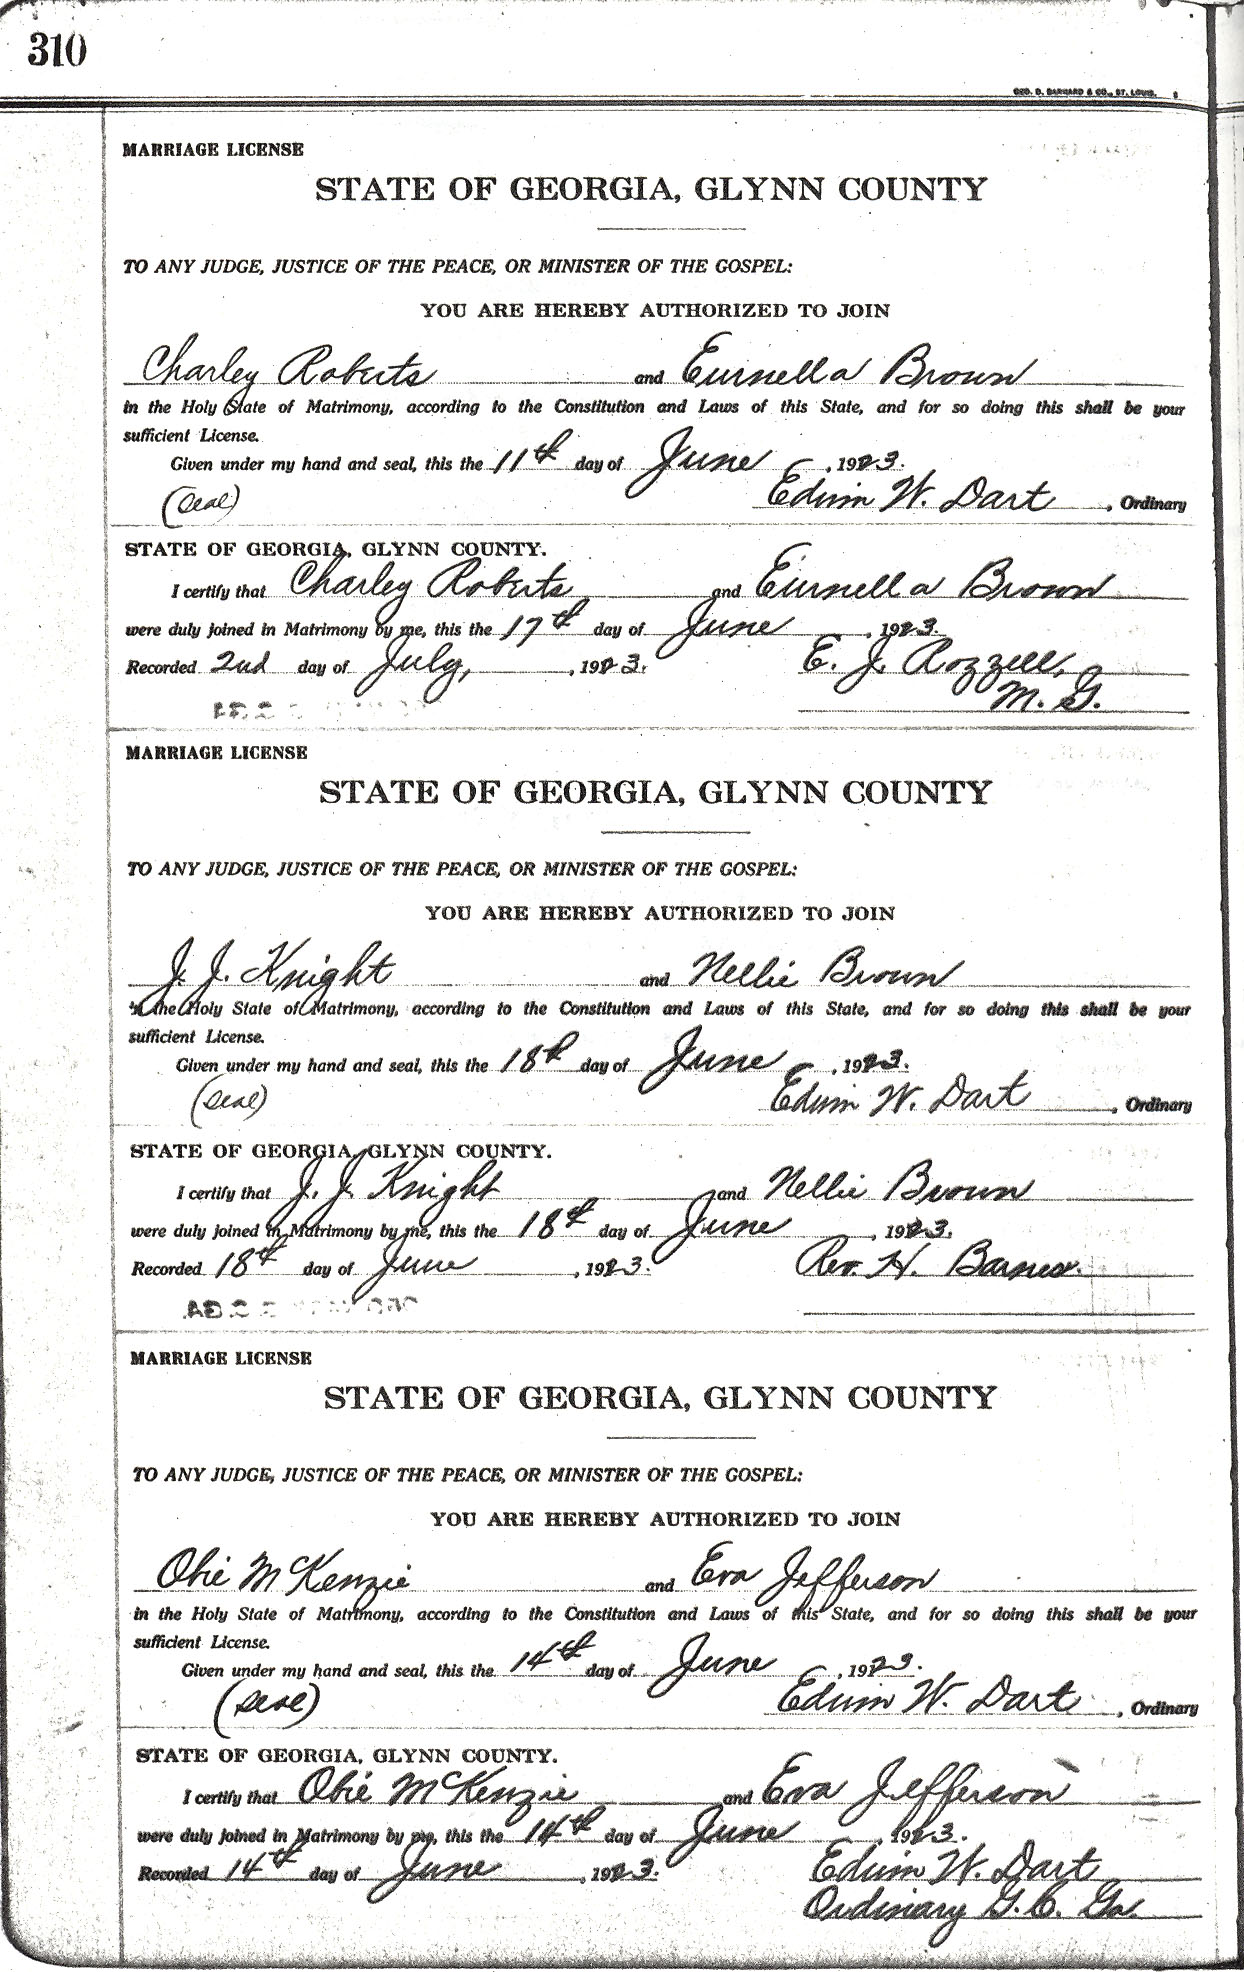 310
GEO. D. BARNARD & CO., ST. LOUIS.
MARRIAGE LICENSE
STATE OF GEORGIA, GLYNN COUNTY
TO ANY JUDGE, JUSTICE OF THE PEACE, OR MINISTER OF THE GOSPEL:
YOU ARE HEREBY AUTHORIZED TO JOIN
Charley Roberts and Eurnella Brown
in the Holy State of Matrimony, according to the Constitution and Laws of this State, and for so doing this shall be your
sufficient License.
Given under my hand and seal, this the 11th day of June, 1923.
(Seal) Edwin W. Dart, Ordinary
STATE OF GEORGIA, GLYNN COUNTY.
I certify that Charley Roberts and Eurnella Brown
were duly joined in Matrimony by me, this the 17th day of June, 1923.
Recorded 2nd day of July, 1923. E. J. Rozzell,
M. G.
MARRIAGE LICENSE
STATE OF GEORGIA, GLYNN COUNTY
TO ANY JUDGE, JUSTICE OF THE PEACE, OR MINISTER OF THE GOSPEL:
YOU ARE HEREBY AUTHORIZED TO JOIN
J. J. Knight and Nellie Brown
in the Holy State of Matrimony, according to the Constitution and Laws of this State, and for so doing this shall be your
sufficient License.
Given under my hand and seal, this the 18th day of June, 1923.
(Seal) Edwin W. Dart, Ordinary
STATE OF GEORGIA, GLYNN COUNTY.
I certify that J. J. Knight and Nellie Brown
were duly joined in Matrimony by me, this the 18th day of June, 1923.
Recorded 18th day of June, 1923. Rev. H. Barnes.
MARRIAGE LICENSE
STATE OF GEORGIA, GLYNN COUNTY
TO ANY JUDGE, JUSTICE OF THE PEACE, OR MINISTER OF THE GOSPEL:
YOU ARE HEREBY AUTHORIZED TO JOIN
Obie McKenzie and Eva Jefferson
in the Holy State of Matrimony, according to the Constitution and Laws of this State, and for so doing this shall be your
sufficient License.
Given under my hand and seal, this the 14th day of June, 1923.
(Seal) Edwin W. Dart, Ordinary
STATE OF GEORGIA, GLYNN COUNTY.
I certify that Obie McKenzie and Eva Jefferson
were duly joined in Matrimony by me, this the 14th day of June, 1923.
Recorded 14th day of June, 1923. Edwin W. Dart
Ordinary G. C. Ga.